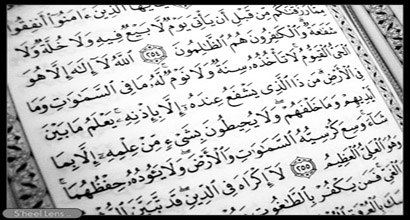 مما رزقناكم من قبل أن يأتي يوم لا بيع فيه ولا خلة ولا
شفعة والكفرون هم الظلمون ٢٥٤ الله لا إله إلا هو
الحي القيوم لا تأخذه سنة ولا نوم له ما في السموت وما
في الأرض من ذا الذي يشفع عنده إلا بإذنه يعلم ما بين
أيديهم وما خلفهم ولا يحيطون بشيء من علمه إلا بما
شاء وسع كرسيه السموت والأرض ولا يئوده حفظهما
وهو العلي العظيم ٢٥٥ لا إكراه في الدين قد تبين
الغي فمن يكفر بالطغوت
S'heel Lens